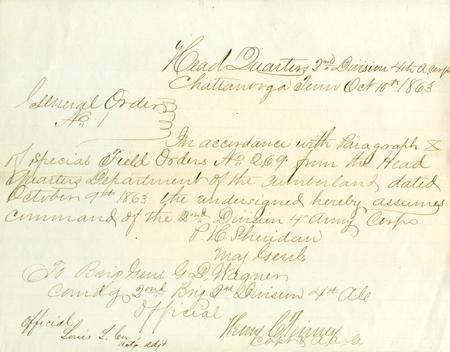 Head Quarters 2nd Division 4th A Corps
Chattanooga Tenn Oct 10th 1863
General Orders
No 1
In accordance with Paragraph X
of Special Field Orders No 269 from the Head
Quarters Department of the Cumberland dated
October 9th 1863 the undersigned hereby assumes
command of the 2nd Division 4th Army Corps
P. H. Sheridan
Maj Genl
To Brig Genl G D Wagner
comdg 2nd Brig 2nd Division 4th AC
Official
Official
Louis L.
actg adjt
Henry C Tinney
Capt & A.A.G.